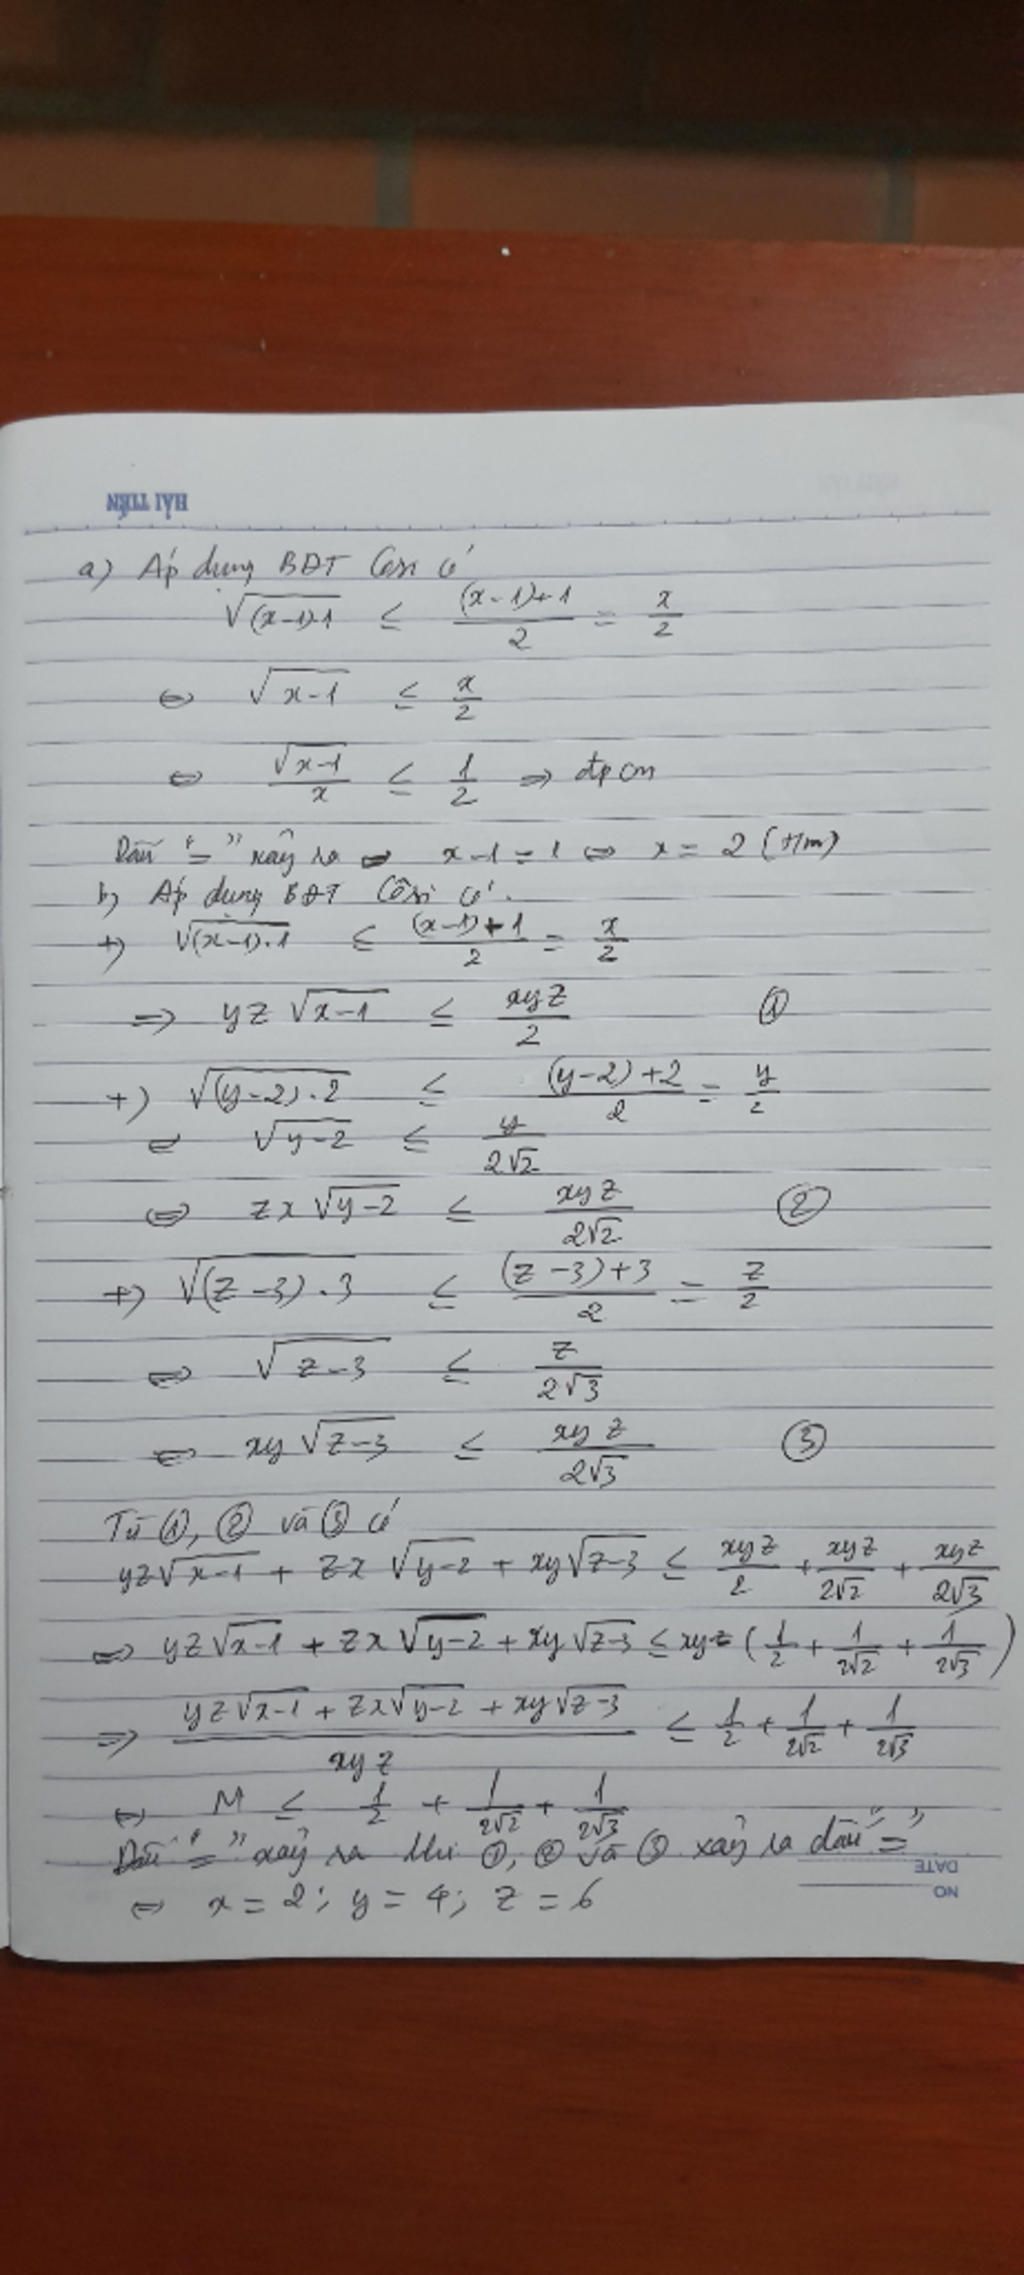 HẢI TIẾN
a) Áp dụng BĐT Côsi có
√((x-1).1) ≤ ((x-1)+1)/2 = x/2
⇔ √(x-1) ≤ x/2
⇔ √(x-1)/x ≤ 1/2 ⇒ đpcm
Dấu "=" xảy ra ⇔ x-1 = 1 ⇔ x = 2 (t/m)
b) Áp dụng BĐT Côsi có.
+) √((x-1).1) ≤ ((x-1)+1)/2 = x/2
⇒ yz√(x-1) ≤ xyz/2 ①
+) √((y-2).2) ≤ ((y-2)+2)/2 = y/2
⇔ √(y-2) ≤ y/(2√2)
⇔ zx√(y-2) ≤ xyz/(2√2) ②
+) √((z-3).3) ≤ ((z-3)+3)/2 = z/2
⇔ √(z-3) ≤ z/(2√3)
⇔ xy√(z-3) ≤ xyz/(2√3) ③
Từ ①, ② và ③ có
yz√(x-1) + zx√(y-2) + xy√(z-3) ≤ xyz/2 + xyz/(2√2) + xyz/(2√3)
⇒ yz√(x-1) + zx√(y-2) + xy√(z-3) ≤ xyz (1/2 + 1/(2√2) + 1/(2√3))
⇒ (yz√(x-1) + zx√(y-2) + xy√(z-3))/(xyz) ≤ 1/2 + 1/(2√2) + 1/(2√3)
⇔ M ≤ 1/2 + 1/(2√2) + 1/(2√3)
Dấu "=" xảy ra khi ①, ② và ③ xảy ra dấu "="
⇔ x = 2; y = 4; z = 6
DATE
NO